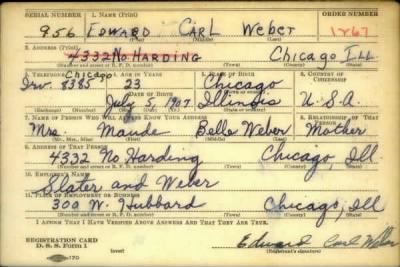 SERIAL NUMBER 1. NAME (Print) ORDER NUMBER
956 EDWARD CARL Weber 1767
(First) (Middle) (Last)
2. ADDRESS (Print)
4332 No. HARDING Chicago Ill
(Number and street or R. F. D. number) (Town) (County) (State)
3. TELEPHONE 4. AGE IN YEARS 5. PLACE OF BIRTH 6. COUNTRY OF CITIZENSHIP
Chicago
Irv. 8385 23 Chicago
DATE OF BIRTH
July 5, 1917 Illinois U.S.A.
7. NAME OF PERSON WHO WILL ALWAYS KNOW YOUR ADDRESS 8. RELATIONSHIP OF THAT PERSON
Mrs. Maude Belle Weber Mother
(Mr., Mrs., Miss) (First) (Middle) (Last)
9. ADDRESS OF THAT PERSON
4332 No Harding Chicago, Ill
(Number and street or R. F. D. number) (Town) (County) (State)
10. EMPLOYER'S NAME
Slater and Weber
11. PLACE OF EMPLOYMENT OR BUSINESS
300 W. Hubbard Chicago, Ill
(Number and street or R. F. D. number) (Town) (County) (State)
I AFFIRM THAT I HAVE VERIFIED ABOVE ANSWERS AND THAT THEY ARE TRUE.
REGISTRATION CARD
D. S. S. Form 1 (over) Edward Carl Weber
(Registrant's signature)